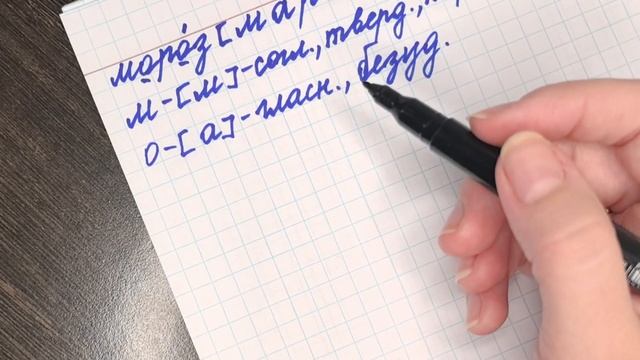 моро́з [мар
м-[м]-согл., тверд.,
о-[а]-гласн., безуд.